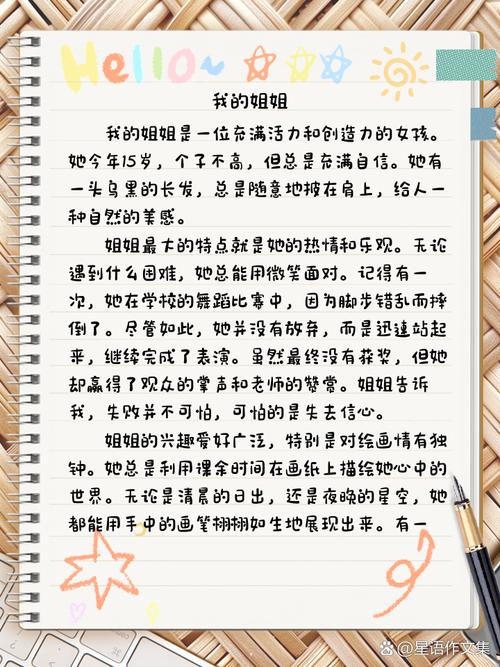 Hello~
我的姐姐
我的姐姐是一位充满活力和创造力的女孩。
她今年15岁，个子不高，但总是充满自信。她有
一头乌黑的长发，总是随意地披在肩上，给人一
种自然的美感。
姐姐最大的特点就是她的热情和乐观。无论
遇到什么困难，她总能用微笑面对。记得有一
次，她在学校的舞蹈比赛中，因为脚步错乱而摔
倒了。尽管如此，她并没有放弃，而是迅速站起
来，继续完成了表演。虽然最终没有获奖，但她
却赢得了观众的掌声和老师的赞赏。姐姐告诉
我，失败并不可怕，可怕的是失去信心。
姐姐的兴趣爱好广泛，特别是对绘画情有独
钟。她总是利用课余时间在画纸上描绘她心中的
世界。无论是清晨的日出，还是夜晚的星空，她
都能用手中的画笔栩栩如生地展现出来。有一
百家号/星语作文集